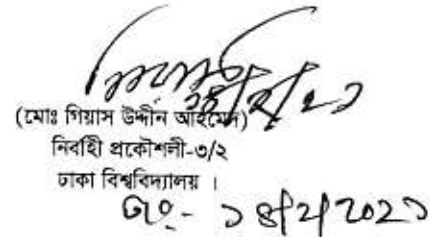 ১৪/২/২১
(মোঃ গিয়াস উদ্দীন আহমেদ)
নির্বাহী প্রকৌশলী-৩/২
ঢাকা বিশ্ববিদ্যালয় ।
১৪/২/২০২১